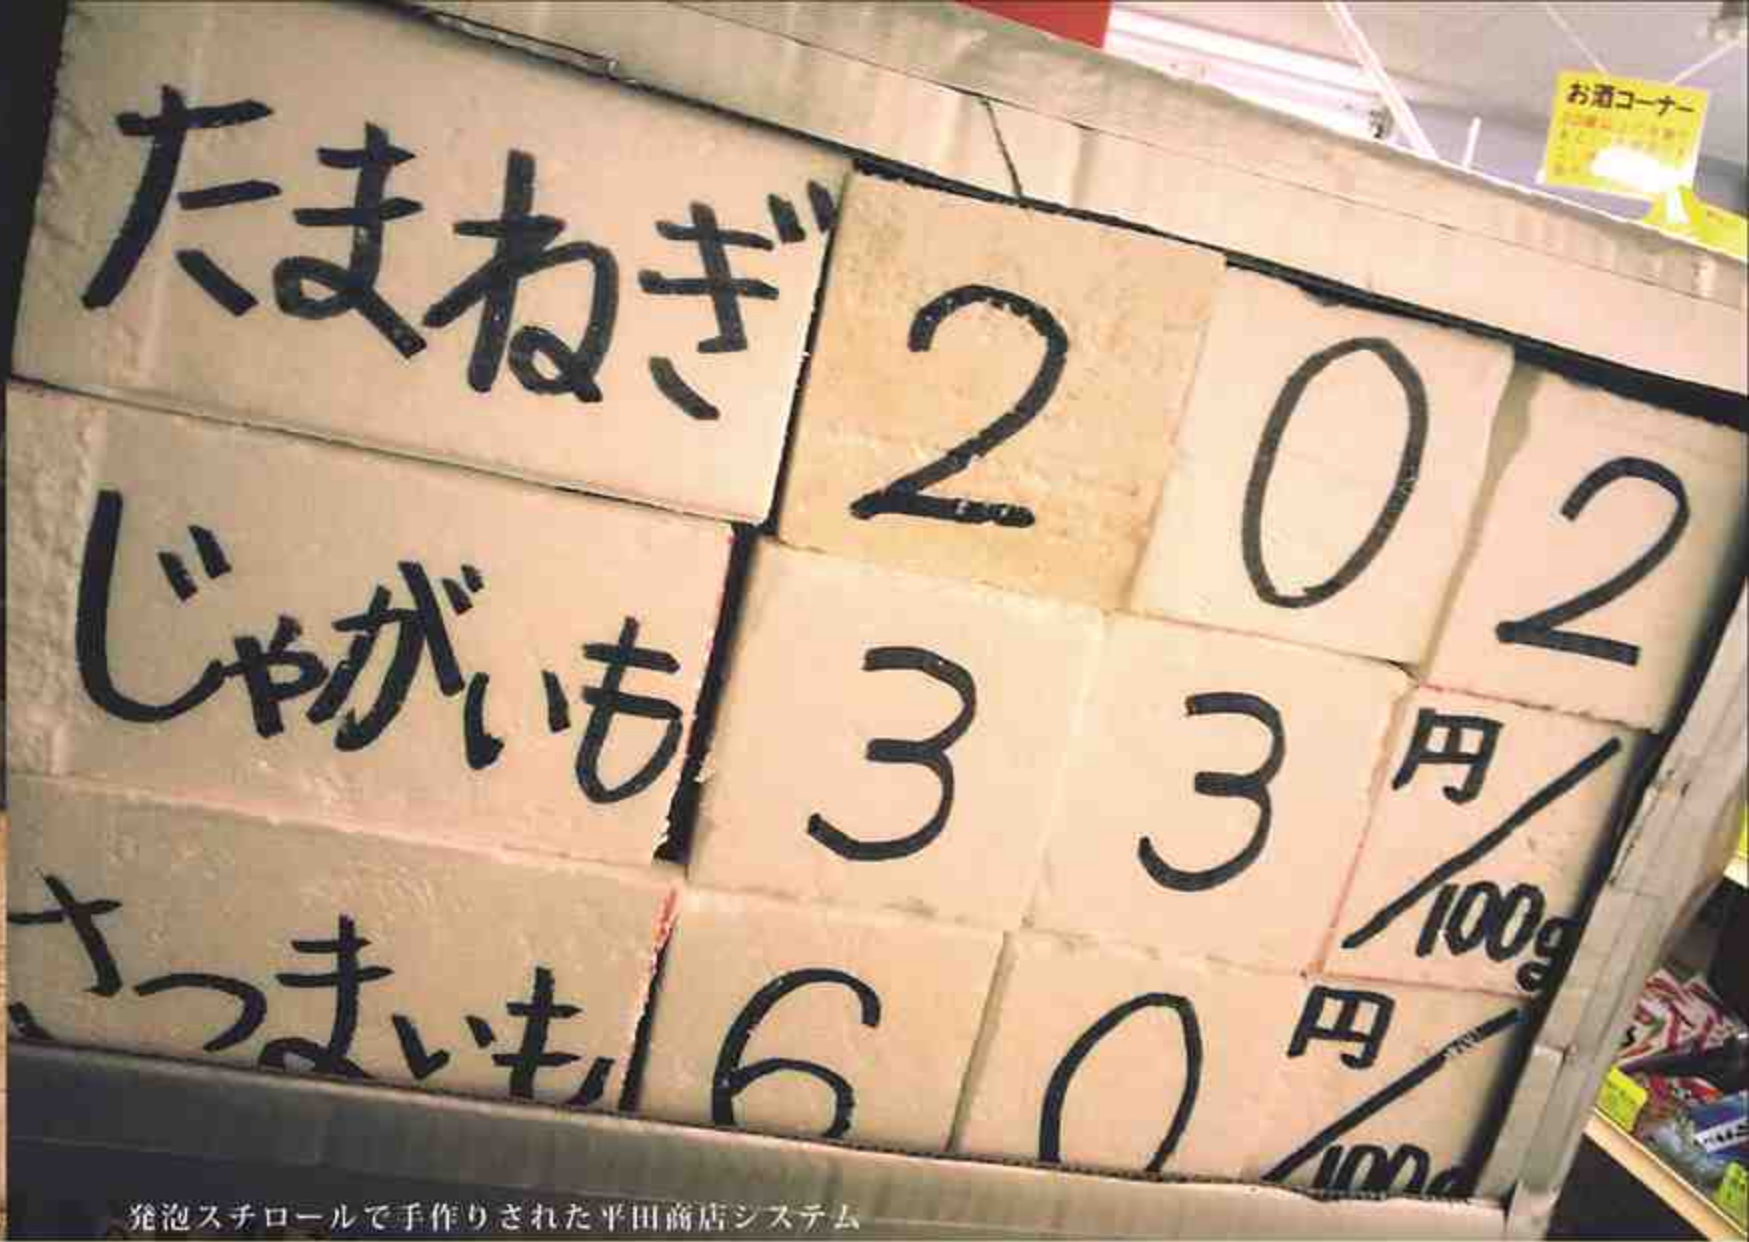 お酒コーナー
たまねぎ 202
じゃがいも 33円/100g
さつまいも 60円/100g
発泡スチロールで手作りされた平田商店システム